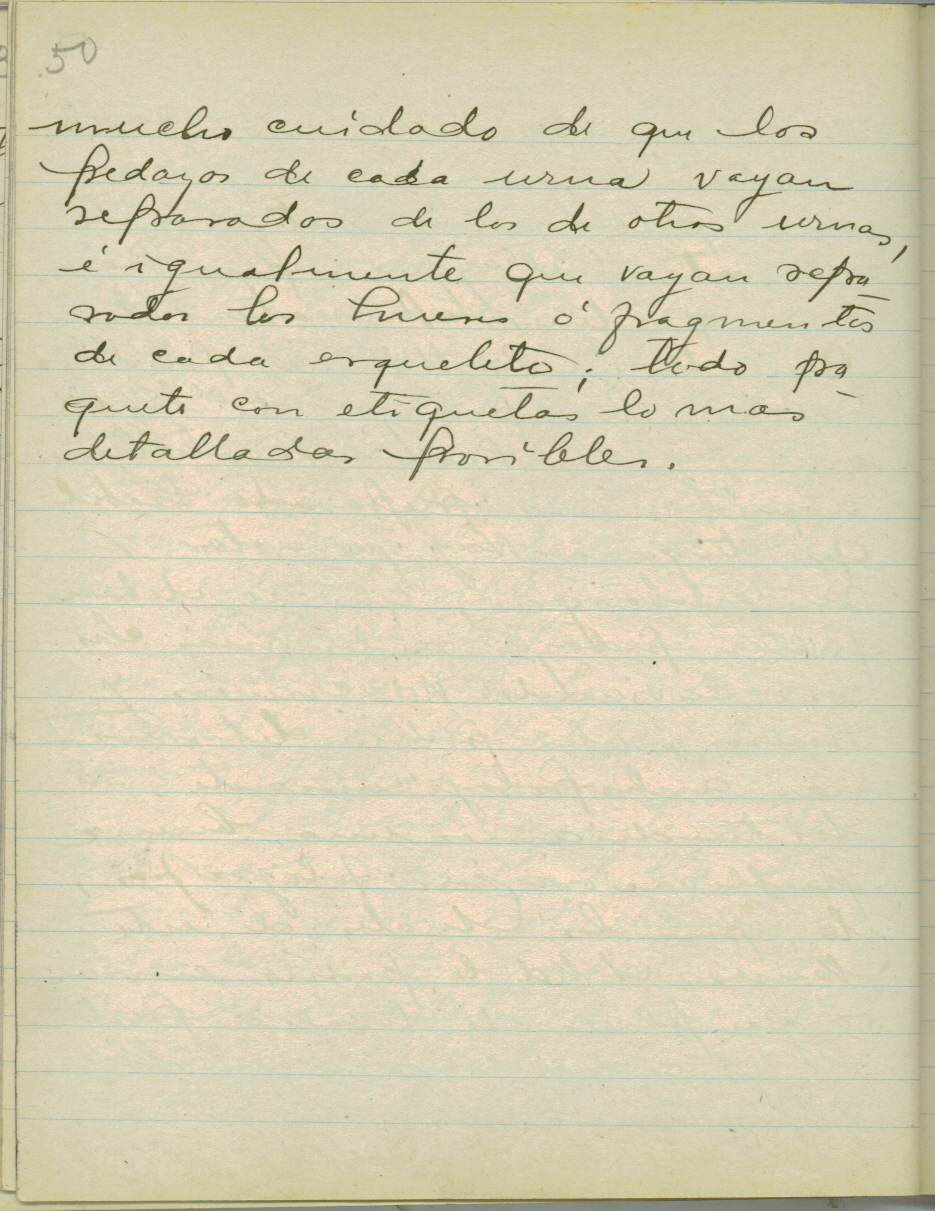 50
mucho cuidado de que los
pedazos de cada urna vayan
separados de los de otras urnas,
é igualmente que vayan sepa-
rados los huesos ó fragmentos
de cada esqueleto; todo pa-
quete con etiquetas lo mas
detalladas posibles.